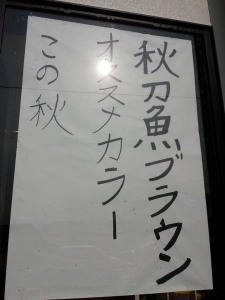 秋刀魚ブラウン
オススメカラー
この秋